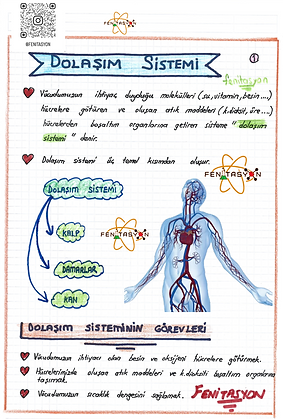 FENİTASYON
@FENITASYON
DOLAŞIM SİSTEMİ
1
fenitasyon
Vücudumuzun ihtiyaç duyduğu molekülleri (su, vitamin, besin ...)
hücrelere götüren ve oluşan atık maddeleri (k.dioksit, üre ...)
hücrelerden boşaltım organlarına getiren sisteme " dolaşım
sistemi " denir.
Dolaşım sistemi üç temel kısımdan oluşur.
FENİTASYON
DOLAŞIM SİSTEMİ
KALP
FENİTASYON
DAMARLAR
KAN
DOLAŞIM SİSTEMİNİN GÖREVLERİ
Vücudumuzun ihtiyacı olan besin ve oksijeni hücrelere götürmek.
Hücrelerimizde oluşan atık maddeleri ve k.dioksiti boşaltım organlarına
taşımak.
Vücudumuzun sıcaklık dengesini sağlamak.
FENİTASYON